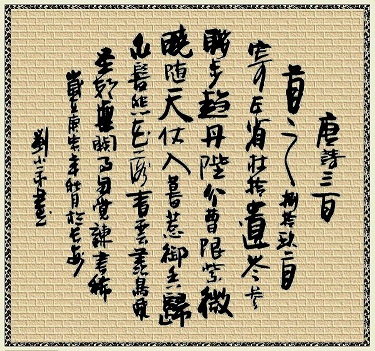 唐詩三百
首之捌拾玖首
寄左省杜拾遺岑参
聯步趨丹陛分曹限紫微
曉随天仗入暮惹御香歸
白髮悲花落青雲羨鳥飛
圣朝無闕事自覺諫書稀
歲在庚年秋月於长安
劉小平書